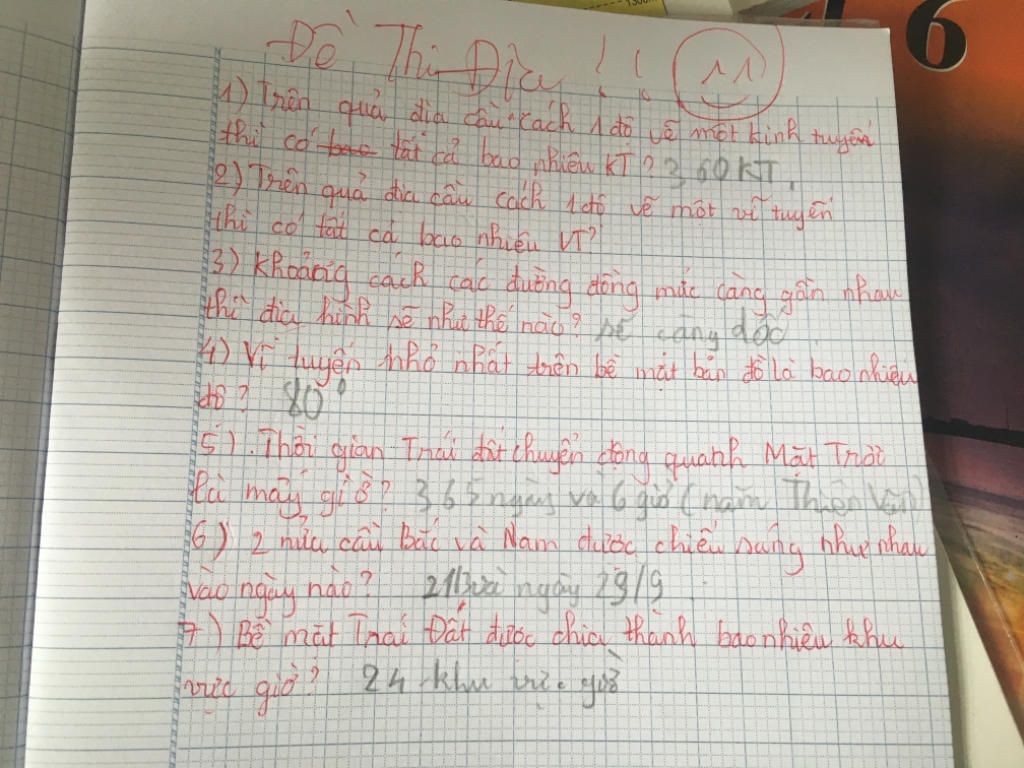 6
Đề Thi Địa !!
1) Trên quả địa cầu cách 1 độ vẽ một kinh tuyến
thì có bao tất cả bao nhiêu KT? 360KT.
2) Trên quả địa cầu cách 1 độ vẽ một vĩ tuyến
thì có tất cả bao nhiêu VT?
3) Khoảng cách các đường đồng mức càng gần nhau
thì địa hình sẽ như thế nào? sẽ càng dốc
4) Vĩ tuyến nhỏ nhất trên bề mặt bản đồ là bao nhiêu
độ? 80°
5). Thời gian Trái đất chuyển động quanh Mặt Trời
là mấy giờ? 365 ngày và 6 giờ (năm Thiên Văn)
6) 2 nửa cầu Bắc và Nam được chiếu sáng như nhau
vào ngày nào? 21/3 và ngày 23/9
7) Bề mặt Trái Đất được chia thành bao nhiêu khu
vực giờ? 24 khu vực giờ